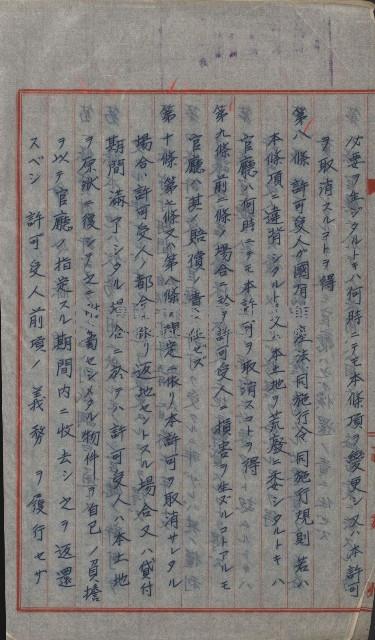 必要ヲ生ジタルトキハ何時ニテモ本條項ヲ變更シ又ハ本許可
ヲ取消スルコトヲ得
第八條 許可受人ガ國有 法同施行令同施行規則若ハ
本條項ニ違背シタルトキ又ハ本土地ヲ荒廢ニ委シタルトキハ
官廳ハ何時ニテモ本許可ヲ取消スコトヲ得
第九條 前二條ノ場合ニ於テ許可受人ニ損害ヲ生ズルコトアルモ
官廳ハ其ノ賠償ノ責ニ任ゼズ
第十條 第七條又ハ第八條ノ規定ニ依リ本許可ヲ取消サレタル
場合、許可受人ノ都合ニ依リ返地セントスル場合又ハ貸付
期間滿了シタル場合ニ於テハ許可受人ハ本土地
ヲ原狀ニ復シ 物件ヲ自己ノ負擔
ヲ以テ官廳ノ指定スル期間内ニ收去シ之ヲ返還
スベシ 許可受人前項ノ義務ヲ履行セザ